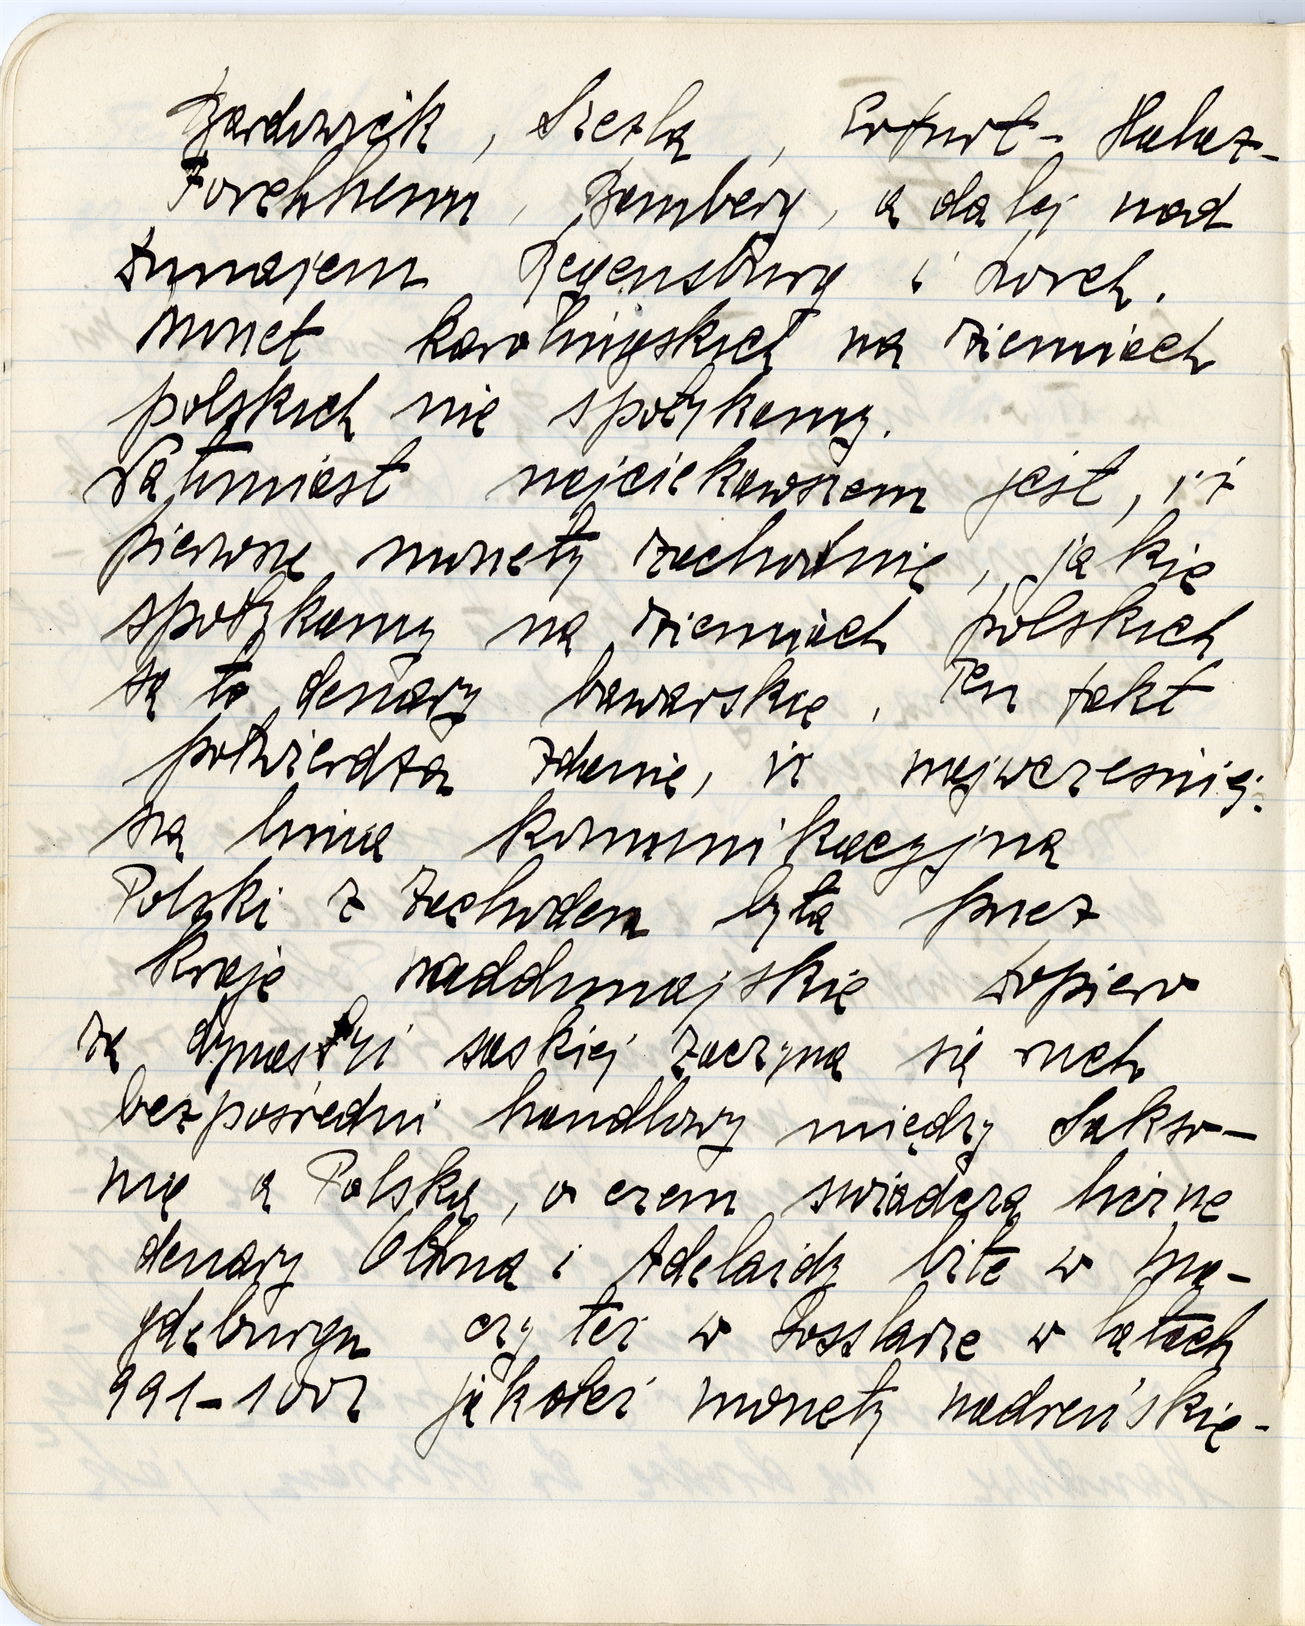 Bardowick, Szezla, Erfurt - Halaz-
Forchheim, Bamberg, a dalej nad
Dunajem Regensburg i Lorch.
Monet karolinjskich na ziemiach
polskich nie spotykamy.
Natomiast najciekawszem jest, iż
pierwsze monety zachodnie, jakie
spotykamy na ziemiach polskich
są to denary bawarskie. Ten fakt
potwierdza zdanie, iż najwcześniej-
szą linią komunikacyjną
Polski z Zachodem była przez
kraje naddunajskie dopiero
za dynastji saskiej zaczyna się ruch
bezpośredni handlowy między Sakso-
nię a Polską, o czem świadczą liczne
denary Ottona i Adelaidy bite w Ma-
gdeburgu czy też w Gosslarze w latach
991-1002 jakoteż monety nadreńskie-